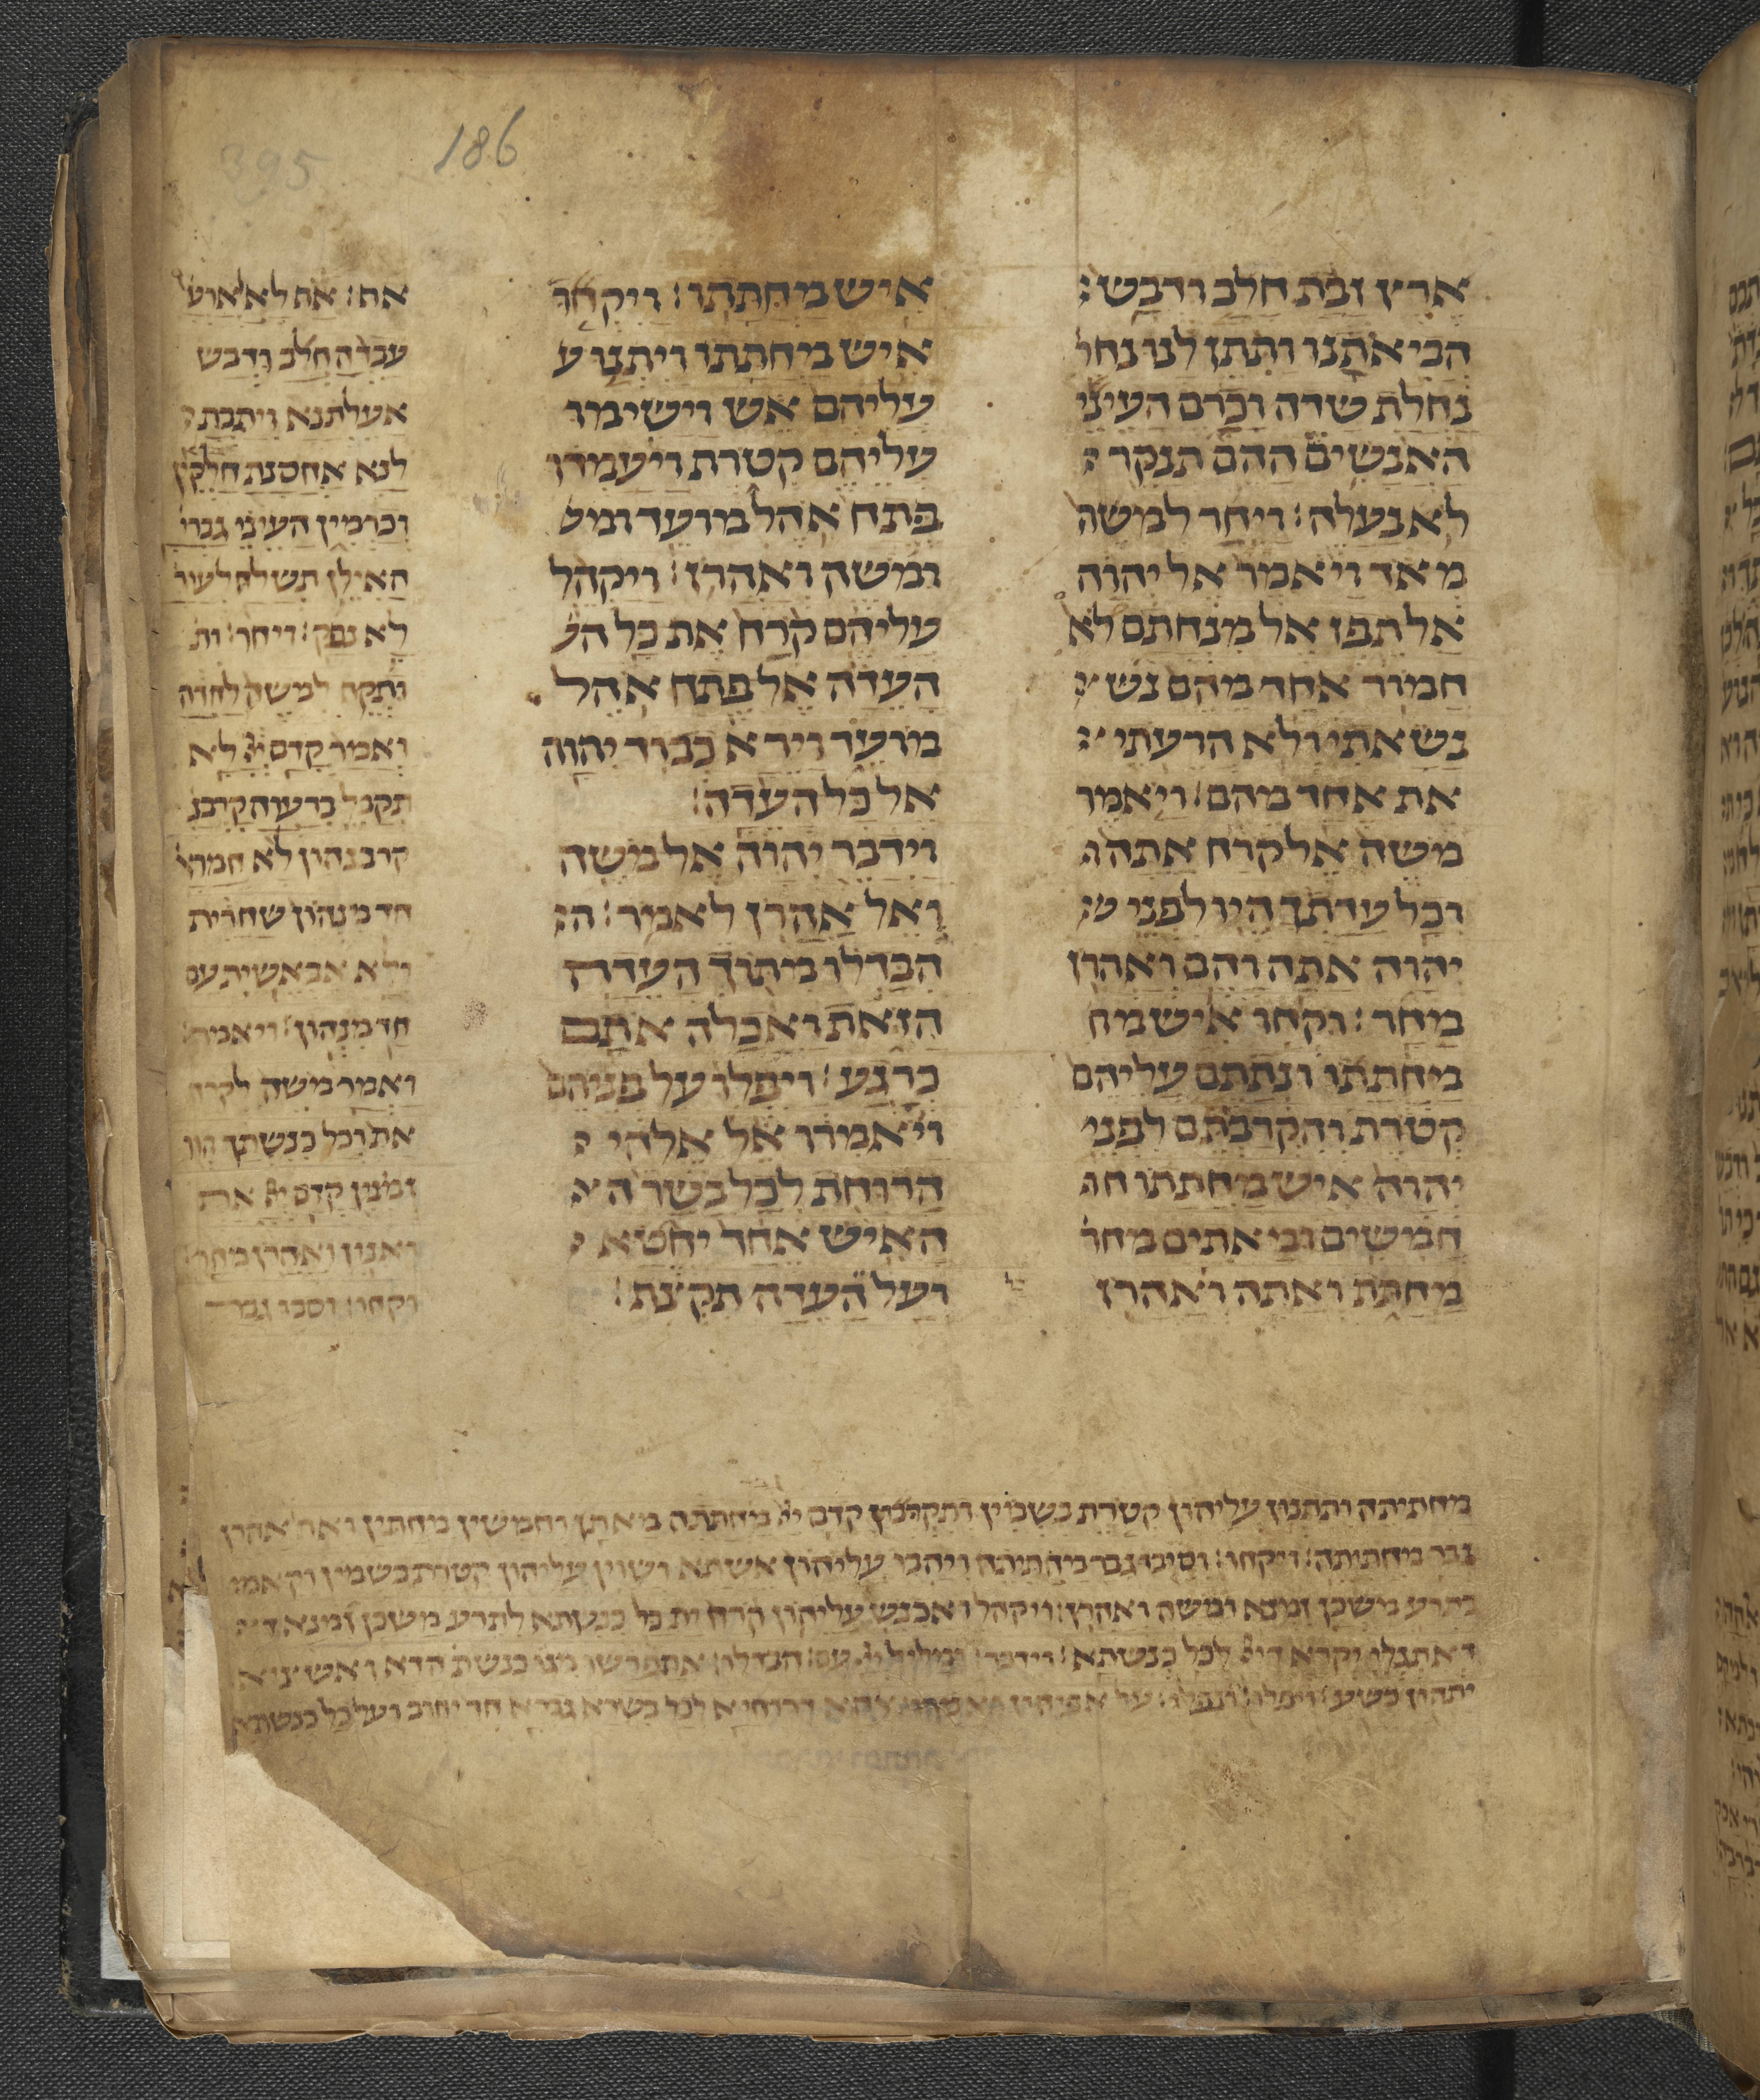 186
395
ארץ זבת חלב ודבש׃
הביאתנו ותתן לנו נחל
נחלת שדה וכרם העיני
האנשים ההם תנקר
לא נעלה׃ ויחר למשה
מאד ויאמר אל יהוה
אל תפן אל מנחתם לא
חמור אחד מהם נש
נשאתי ולא הרעתי
את אחד מהם׃ ויאמר
משה אל קרח אתה ו
וכל עדתך היו לפני
יהוה אתה והם ואהרן
מחר׃ וקחו איש מח
מחתתו ונתתם עליהם
קטרת והקרבתם לפני
יהוה איש מחתתו ח
חמשים ומאתים מחת
מחתת ואתה ואהרן
איש מחתתו׃ ויקחו
איש מחתתו ויתנו ע
עליהם אש וישימו
עליהם קטרת ויעמדו
פתח אהל מועד ומש
ומשה ואהרן׃ ויקהל
עליהם קרח את כל הע
העדה אל פתח אהל
מועד וירא כבוד יהוה
אל כל העדה׃
וידבר יהוה אל משה
ואל אהרן לאמר׃ ה
הבדלו מתוך העדה
הזאת ואכלה אתם
כרגע׃ ויפלו על פניהם
ויאמרו אל אלהי
הרוחת לכל בשר ה
האיש אחד יחטא
ועל העדה תקצף׃
את׃ אף לא לארע
עבדה חלב ודבש
אעלתנא ויהבת
לנא אחסנת חקלין
וכרמין העיני גברי
האילן תשלח לעור
לא נסק׃ ויחר׃ ות
ותקף למשה לחדה
ואמר קדם יי לא
תקבל ברעוה קרבנ
קרבנהון לא חמרא
חד מנהון שחרית
ולא אבאשית עם
חד מנהון׃ ויאמר׃
ואמר משה לקרח
את וכל כנשתך הוו
זמנין קדם יי את
ואנון ואהרן מחר׃
וקחו׃ וסבו גבר
מחתיתה ותתנון עליהון קטרת בסמין ותקרבון קדם יי גבר מחתיתה מאתן וחמשין מחתין ואת ואהרן
גבר מחתיתה׃ ויקחו׃ ונסיבו גבר מחתיתה ויהבו עליהון אשתא ושוו עליהון קטרת בסמין וקמו
בתרע משכן זמנא ומשה ואהרן׃ ויקהל׃ ואכנש עליהון קרח ית כל כנשתא לתרע משכן זמנא
ואתגלי יקרא דיי לכל כנשתא׃ וידבר׃ ומליל יי עם׃ הבדלו׃ אתפרשו מגו כנשתא הדא ואשיצי
יתהון כשעה׃ ויפלו׃ ונפלו על אפיהון ואמרו אלהא אלה רוחיא לכל בסרא גברא חד יחוב ועל כל כנשתא